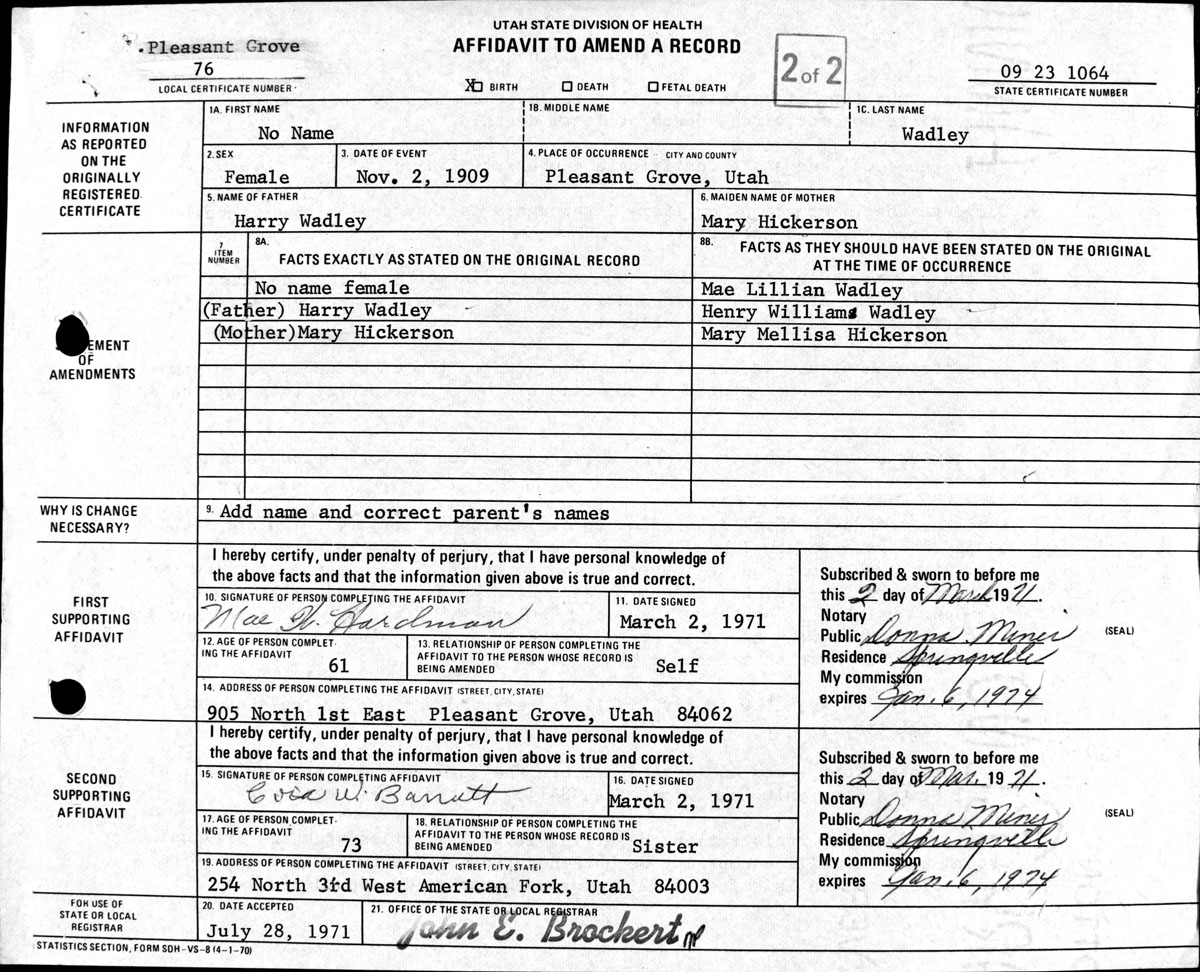 UTAH STATE DIVISION OF HEALTH
AFFIDAVIT TO AMEND A RECORD
Pleasant Grove
76
LOCAL CERTIFICATE NUMBER
X BIRTH DEATH FETAL DEATH
2 of 2
09 23 1064
STATE CERTIFICATE NUMBER
INFORMATION AS REPORTED ON THE ORIGINALLY REGISTERED CERTIFICATE
1A. FIRST NAME
No Name
1B. MIDDLE NAME
1C. LAST NAME
Wadley
2. SEX
Female
3. DATE OF EVENT
Nov. 2, 1909
4. PLACE OF OCCURRENCE - CITY AND COUNTY
Pleasant Grove, Utah
5. NAME OF FATHER
Harry Wadley
6. MAIDEN NAME OF MOTHER
Mary Hickerson
7 ITEM NUMBER
8A.
FACTS EXACTLY AS STATED ON THE ORIGINAL RECORD
8B.
FACTS AS THEY SHOULD HAVE BEEN STATED ON THE ORIGINAL
AT THE TIME OF OCCURRENCE
EMENT
OF
AMENDMENTS
No name female
Mae Lillian Wadley
(Father) Harry Wadley
Henry William Wadley
(Mother)Mary Hickerson
Mary Mellisa Hickerson
WHY IS CHANGE
NECESSARY?
9. Add name and correct parent's names
FIRST
SUPPORTING
AFFIDAVIT
I hereby certify, under penalty of perjury, that I have personal knowledge of
the above facts and that the information given above is true and correct.
10. SIGNATURE OF PERSON COMPLETING THE AFFIDAVIT
Mae W. Hardman
11. DATE SIGNED
March 2, 1971
12. AGE OF PERSON COMPLET-
ING THE AFFIDAVIT
61
13. RELATIONSHIP OF PERSON COMPLETING THE
AFFIDAVIT TO THE PERSON WHOSE RECORD IS
BEING AMENDED
Self
14. ADDRESS OF PERSON COMPLETING THE AFFIDAVIT (STREET, CITY, STATE)
905 North 1st East Pleasant Grove, Utah 84062
Subscribed & sworn to before me
this 2 day of March 1971.
Notary
Public Donna Miner
(SEAL)
Residence Springville
My commission
expires Jan. 6, 1974
SECOND
SUPPORTING
AFFIDAVIT
I hereby certify, under penalty of perjury, that I have personal knowledge of
the above facts and that the information given above is true and correct.
15. SIGNATURE OF PERSON COMPLETING AFFIDAVIT
W. Barratt
16. DATE SIGNED
March 2, 1971
17. AGE OF PERSON COMPLET-
ING THE AFFIDAVIT
73
18. RELATIONSHIP OF PERSON COMPLETING THE
AFFIDAVIT TO THE PERSON WHOSE RECORD IS
BEING AMENDED
Sister
19. ADDRESS OF PERSON COMPLETING THE AFFIDAVIT (STREET, CITY, STATE)
254 North 3rd West American Fork, Utah 84003
Subscribed & sworn to before me
this 2 day of Mar. 1971.
Notary
Public Donna Miner
(SEAL)
Residence Springville
My commission
expires Jan. 6, 1974
FOR USE OF
STATE OR LOCAL
REGISTRAR
20. DATE ACCEPTED
July 28, 1971
21. OFFICE OF THE STATE OR LOCAL REGISTRAR
John E. Brockert
STATISTICS SECTION, FORM SDH-VS-8 (4-1-70)